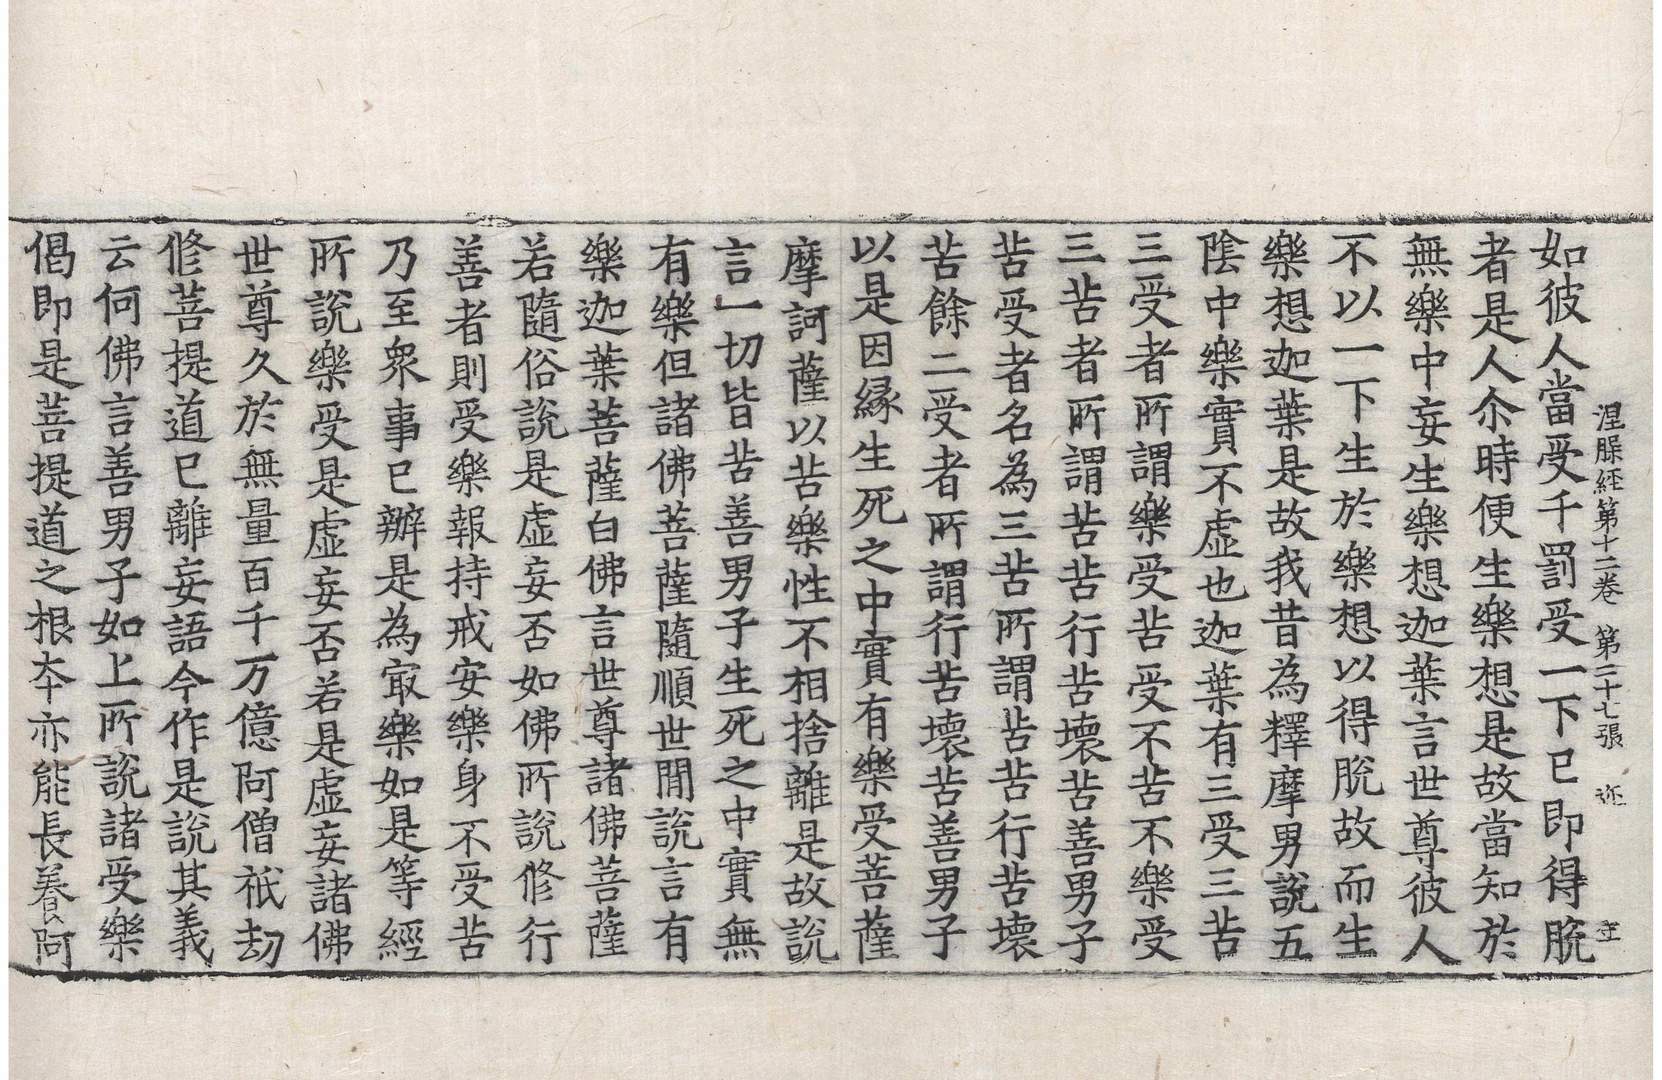 涅槃経第十二卷 第二十七張 迩 㝎
如彼人當受千罰受一下已即得脫
者是人尒時便生樂想是故當知於
無樂中妄生樂想迦葉言世尊彼人
不以一下生於樂想以得脫故而生
樂想迦葉是故我昔為釋摩男說五
陰中樂實不虛也迦葉有三受三苦
三受者所謂樂受苦受不苦不樂受
三苦者所謂苦苦行苦壞苦善男子
苦受者名為三苦所謂苦苦行苦壞
苦餘二受者所謂行苦壞苦善男子
以是因緣生死之中實有樂受菩薩
摩訶薩以苦樂性不相捨離是故說
言一切皆苦善男子生死之中實無
有樂但諸佛菩薩隨順世間說言有
樂迦葉菩薩白佛言世尊諸佛菩薩
若隨俗說是虛妄否如佛所說修行
善者則受樂報持戒安樂身不受苦
乃至眾事已辦是為㝡樂如是等經
所說樂受是虛妄否若是虛妄諸佛
世尊久於無量百千万億阿僧祇劫
修菩提道已離妄語今作是說其義
云何佛言善男子如上所說諸受樂
偈即是菩提道之根夲亦能長養阿